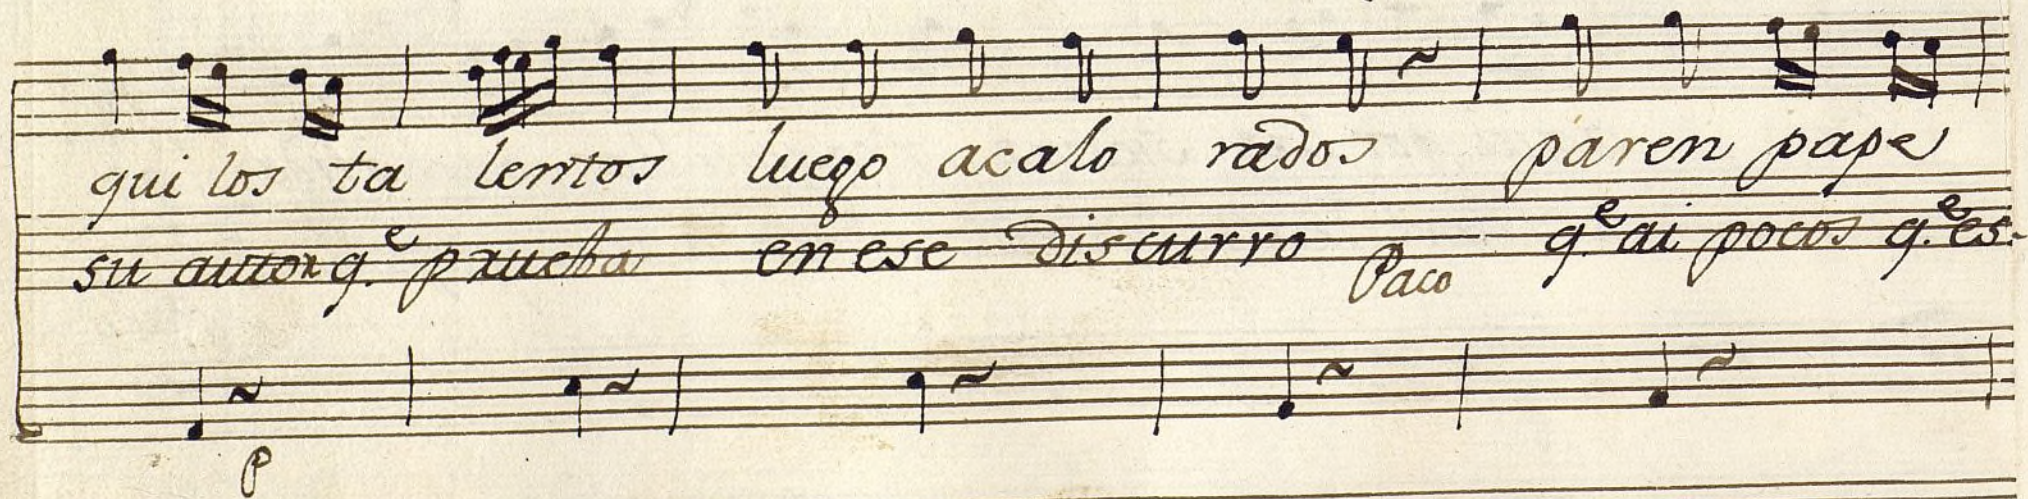 qui los ta lentos luego acalo rados paren pape
su autor q.e prueba en ese discurro Paco q.e ai pocos q.e es.
p